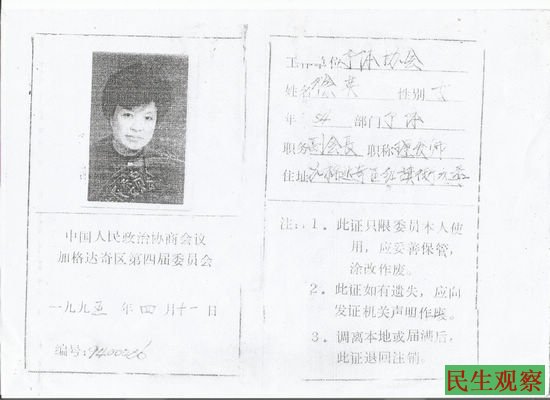 中国人民政治协商会议
加格达奇区第四届委员会
一九九五年四月十一日
编号:9400026
工作单位 个体协会
姓名 性别 女
年 34 部门 个体
职务 副会长 职称
住址
注:1. 此证只限委员本人使
用,应妥善保管,
涂改作废。
2. 此证如有遗失,应向
发证机关声明作废。
3. 调离本地或届满后,
此证退回注销。
民生观察